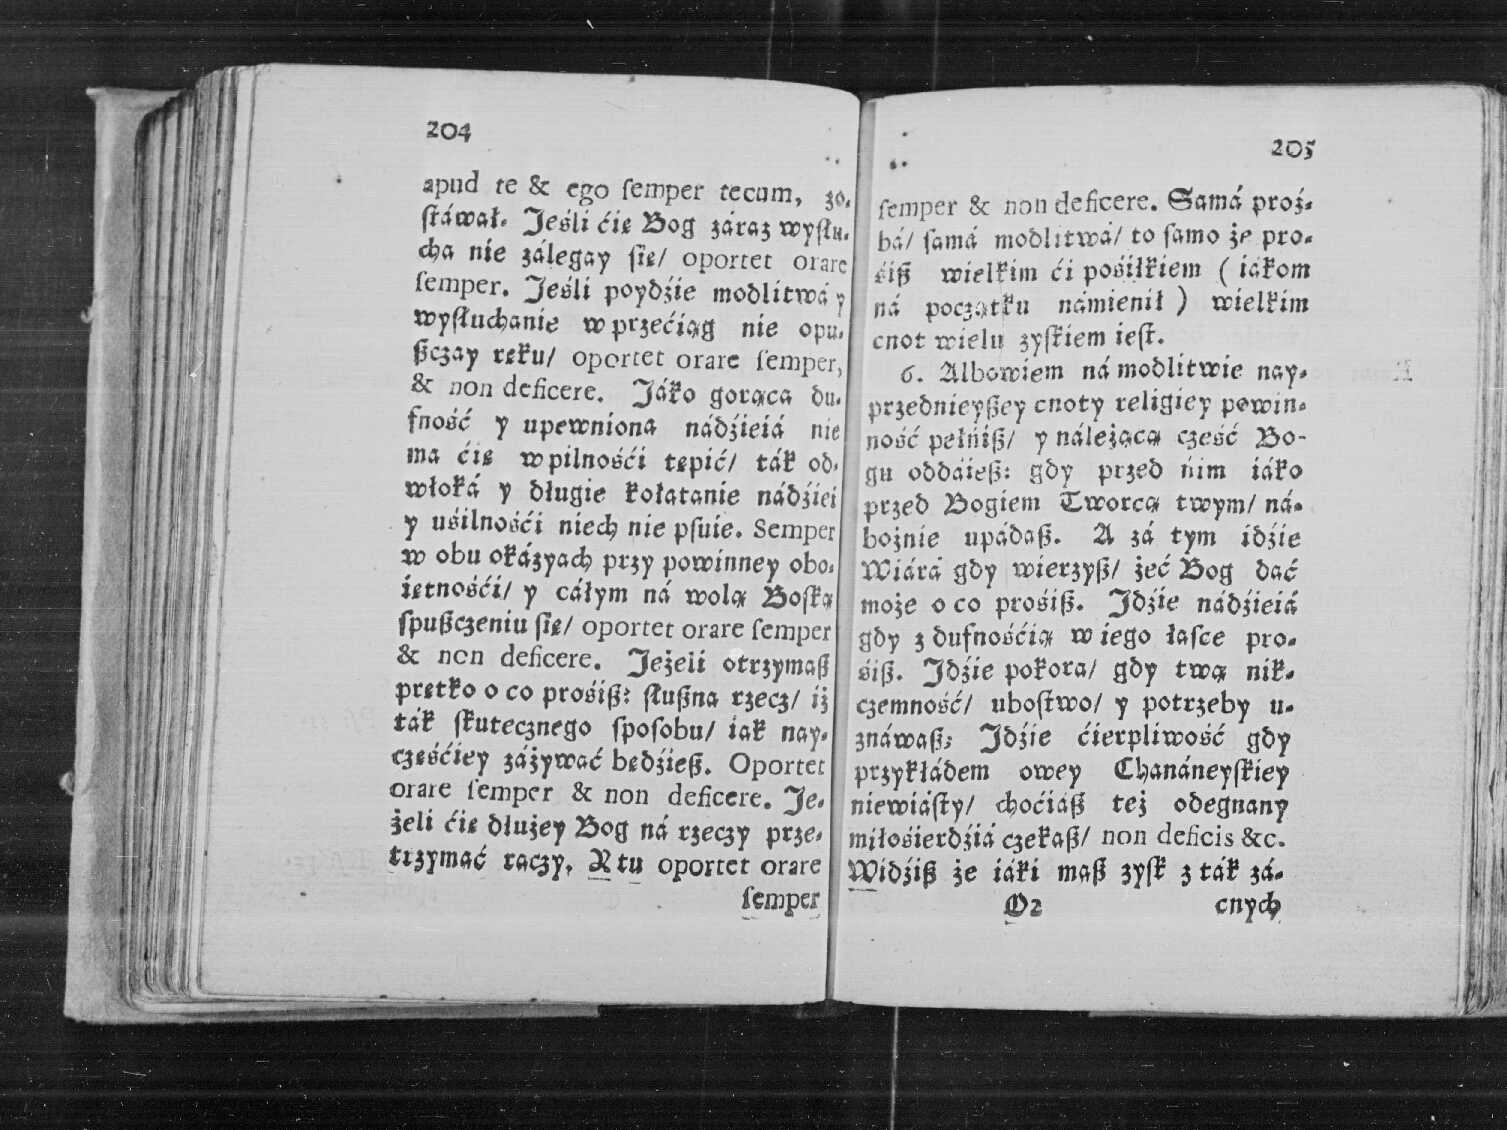 204
apud te & ego ſemper tecum, zo-
ſtáwał. Jeśli ćię Bog záraz wyſłu-
cha nie zálegay ſię/ oportet orare
ſemper. Jeśli poydźie modlitwá y
wyſłuchanie w przećiąg nie opu-
ßczay ręku/ oportet orare ſemper,
& non deficere. Jáko gorąca du-
fność y upewniona nádźieiá nie
ma ćię w pilnośći tępić/ ták od-
włoká y długie kołatanie nádźiei
y uśilnośći niech nie pſuie. Semper
w obu okázyach przy powinney obo-
iętnośći/ y cáłym ná wolą Boſką
ſpußczeniu ſię/ oportet orare ſemper
& non deficere. Jeżeli otrzymaß
prętko o co prośiß: ſłußna rzecz/ iż
ták ſkutecznego ſpoſobu/ iak nay-
częśćiey záżywać będźieß. Oportet
orare ſemper & non deficere. Je-
żeli ćię dłużey Bog ná rzeczy prze-
trzymać raczy, Y tu oportet orare
ſemper
205
ſemper & non deficere. Samá proź-
bá/ ſamá modlitwá/ to ſamo że pro-
śiß wielkim ći pośiłkiem ( iákom
ná początku námienił ) wielkim
cnot wielu zyſkiem ieſt.
6. Albowiem ná modlitwie nay-
przednieyßey cnoty religiey powin-
ność pełńiß/ y náleżącą cześć Bo-
gu oddáieß: gdy przed ńim iáko
przed Bogiem Tworcą twym/ ná-
bożnie upádaß. A zá tym idźie
Wiárá gdy wierzyß/ żeć Bog dać
może o co prośiß. Jdźie nádźieiá
gdy z dufnośćią w iego łaſce pro-
śiß. Jdźie pokora/ gdy twą nik-
czemność/ uboſtwo/ y potrzeby u-
znáwaß; Jdźie ćierpliwość gdy
przykłádem owey Chanáneyſkiey
niewiáſty/ choćiáß też odegnany
miłosierdźiá czekaß/ non deficis &c.
Widźiß że iáki maß zyſk z ták zá-
O2 cnych